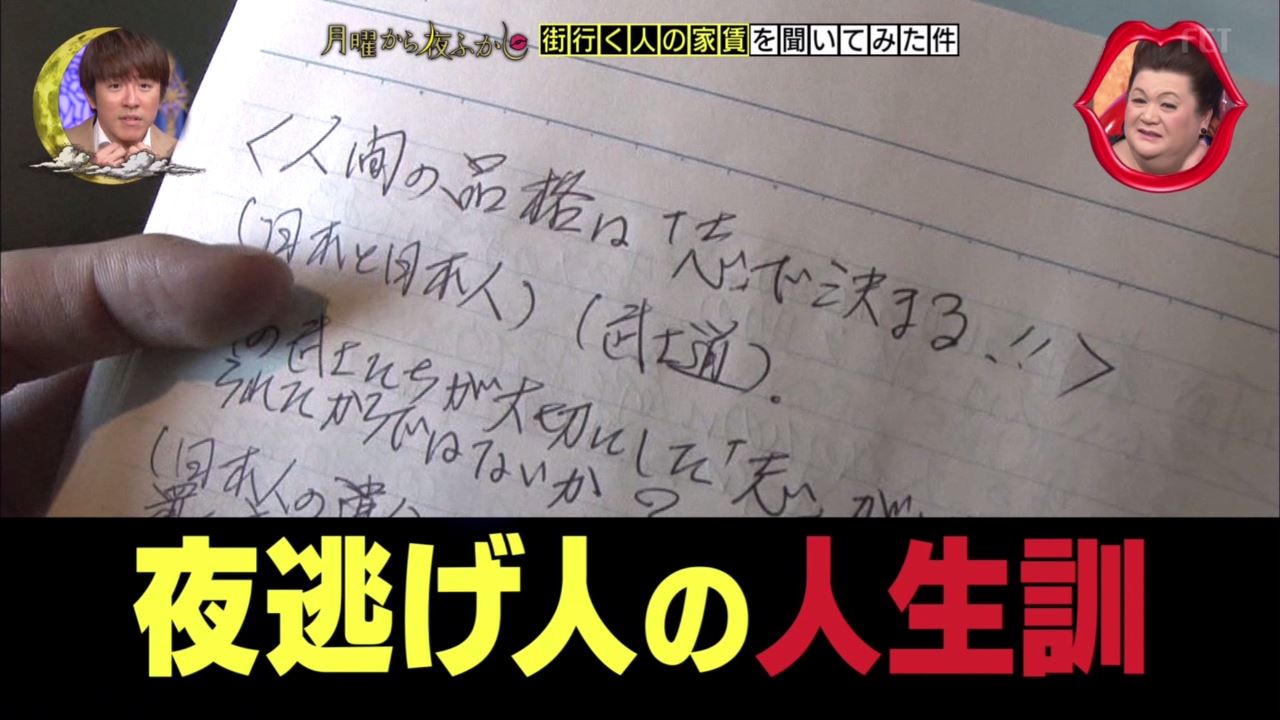 月曜から夜ふかし
街行く人の家賃を聞いてみた件
FCT
<人間の品格は「志」で決まる、!!>
(日本と日本人)(武士道)。
の武士たちが大切にした「志」が
うれてたからではないか?
(日本人の
夜逃げ人の人生訓